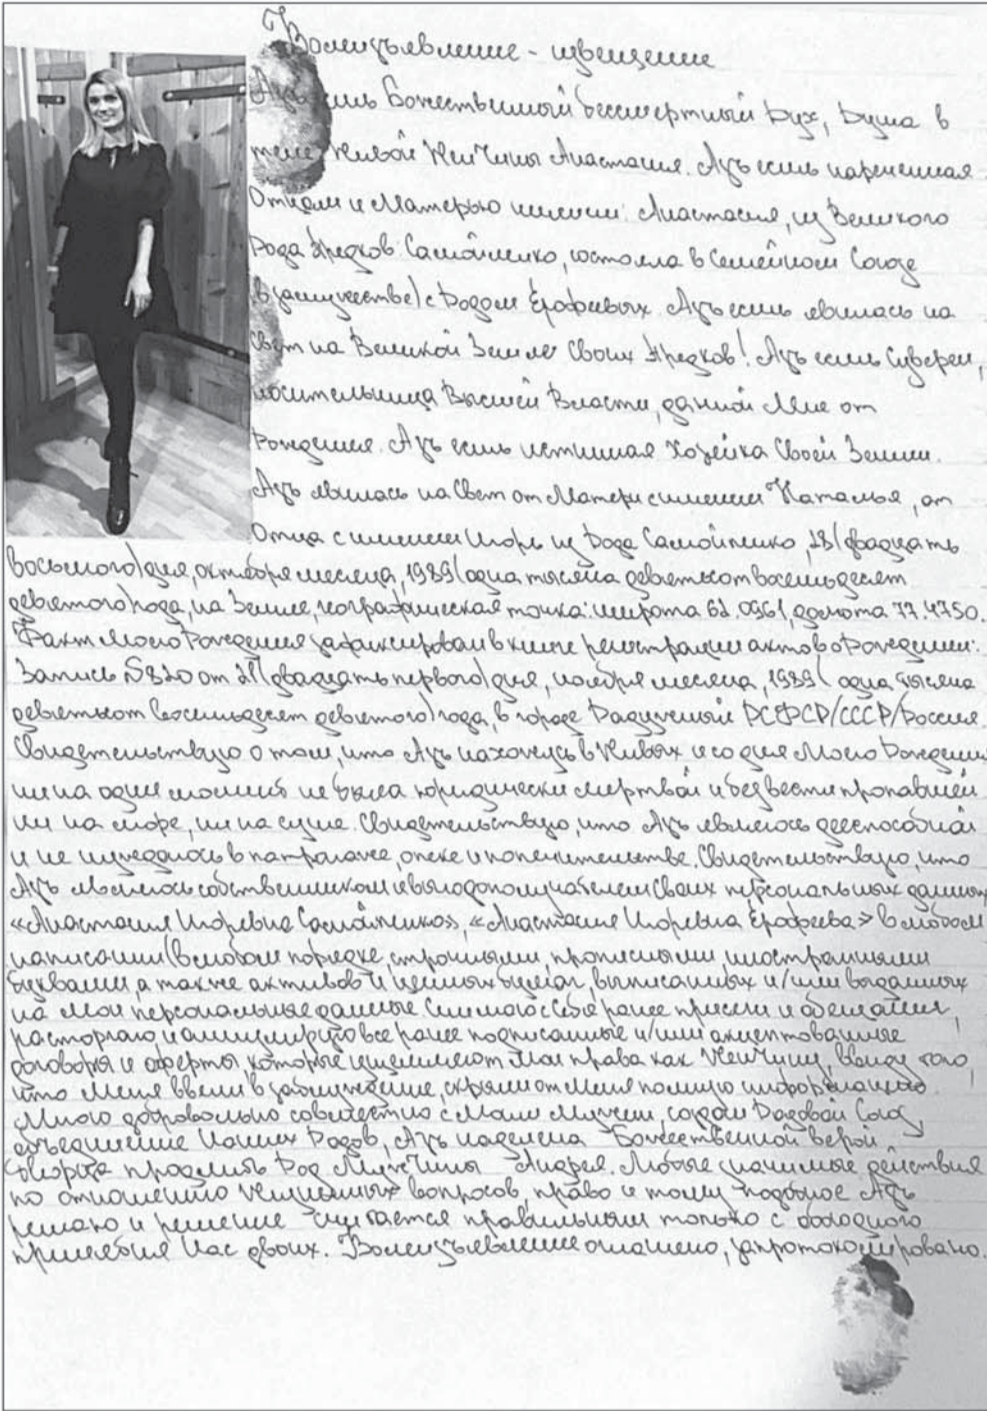 Волеизъявление - извещение
Азъ есмь Божественный бессмертный Дух, Душа в
теле Живой ЖенЧины Анастасия. Азъ есмь нареченная
Отцом и Матерью именем: Анастасия, из Великого
Рода Предков Самойленко, состояла в Семейном Союзе
(в замужестве) с Родом Ерофеевых. Азъ есмь явилась на
Свет на Великой Земле Своих Предков! Азъ есмь Суверен,
носительница Высшей Власти, данной Мне от
Рождения. Азъ есмь истинная Хозяйка Своей Земли.
Азъ явилась на Свет от Матери с именем Наталья, от
Отца с именем Игорь из Рода Самойленко, 28 (двадцать
восьмого) дня, октября месяца, 1989 (одна тысяча девятьсот восемьдесят
девятого) года, на Земле, географическая точка: широта 62.0961, долгота 77.4750.
Факт Моего Рождения зафиксирован в книге регистрации актов о Рождении:
Запись №820 от 21 (двадцать первого) дня, ноября месяца, 1989 (одна тысяча
девятьсот восемьдесят девятого) года, в городе Радужный РСФСР/СССР/Россия.
Свидетельствую о том, что Азъ нахожусь в Живых и со дня Моего Рождения
ни на один момент не была юридически мертвой и безвести пропавшей
ни на море, ни на суше. Свидетельствую, что Азъ являюсь дееспособной
и не нуждаюсь в патронаже, опеке и попечительстве. Свидетельствую, что
Азъ являюсь собственником и выгодополучателем Своих персональных данных
«Анастасия Игоревна Самойленко», «Анастасия Игоревна Ерофеева» в любом
написании (в любом порядке, строчными, прописными, иностранными
буквами, а также активов и ценных бумаг, выписанных и/или выданных
на Мои персональные данные. Снимаю с Себя ранее присяги и обещания,
расторгаю и аннулирую все ранее подписанные и/или акцептованные
договоры и оферты, которые ущемляют Мои права как ЖенЧину, ввиду того,
что Меня ввели в заблуждение, скрыли от Меня полную информацию.
Мною добровольно совместно с Моим Мужем, создан Родовой Союз,
объединение Наших Родов, Азъ наделена Божественной верой,
Творца продлить Род МужЧины Андрея. Любые значимые действия
по отношению жизненных вопросов, право и тому подобное Азъ
решаю и решение считается правильным только с обоюдного
принятия Нас двоих. Волеизъявление оглашено, запротоколировано.